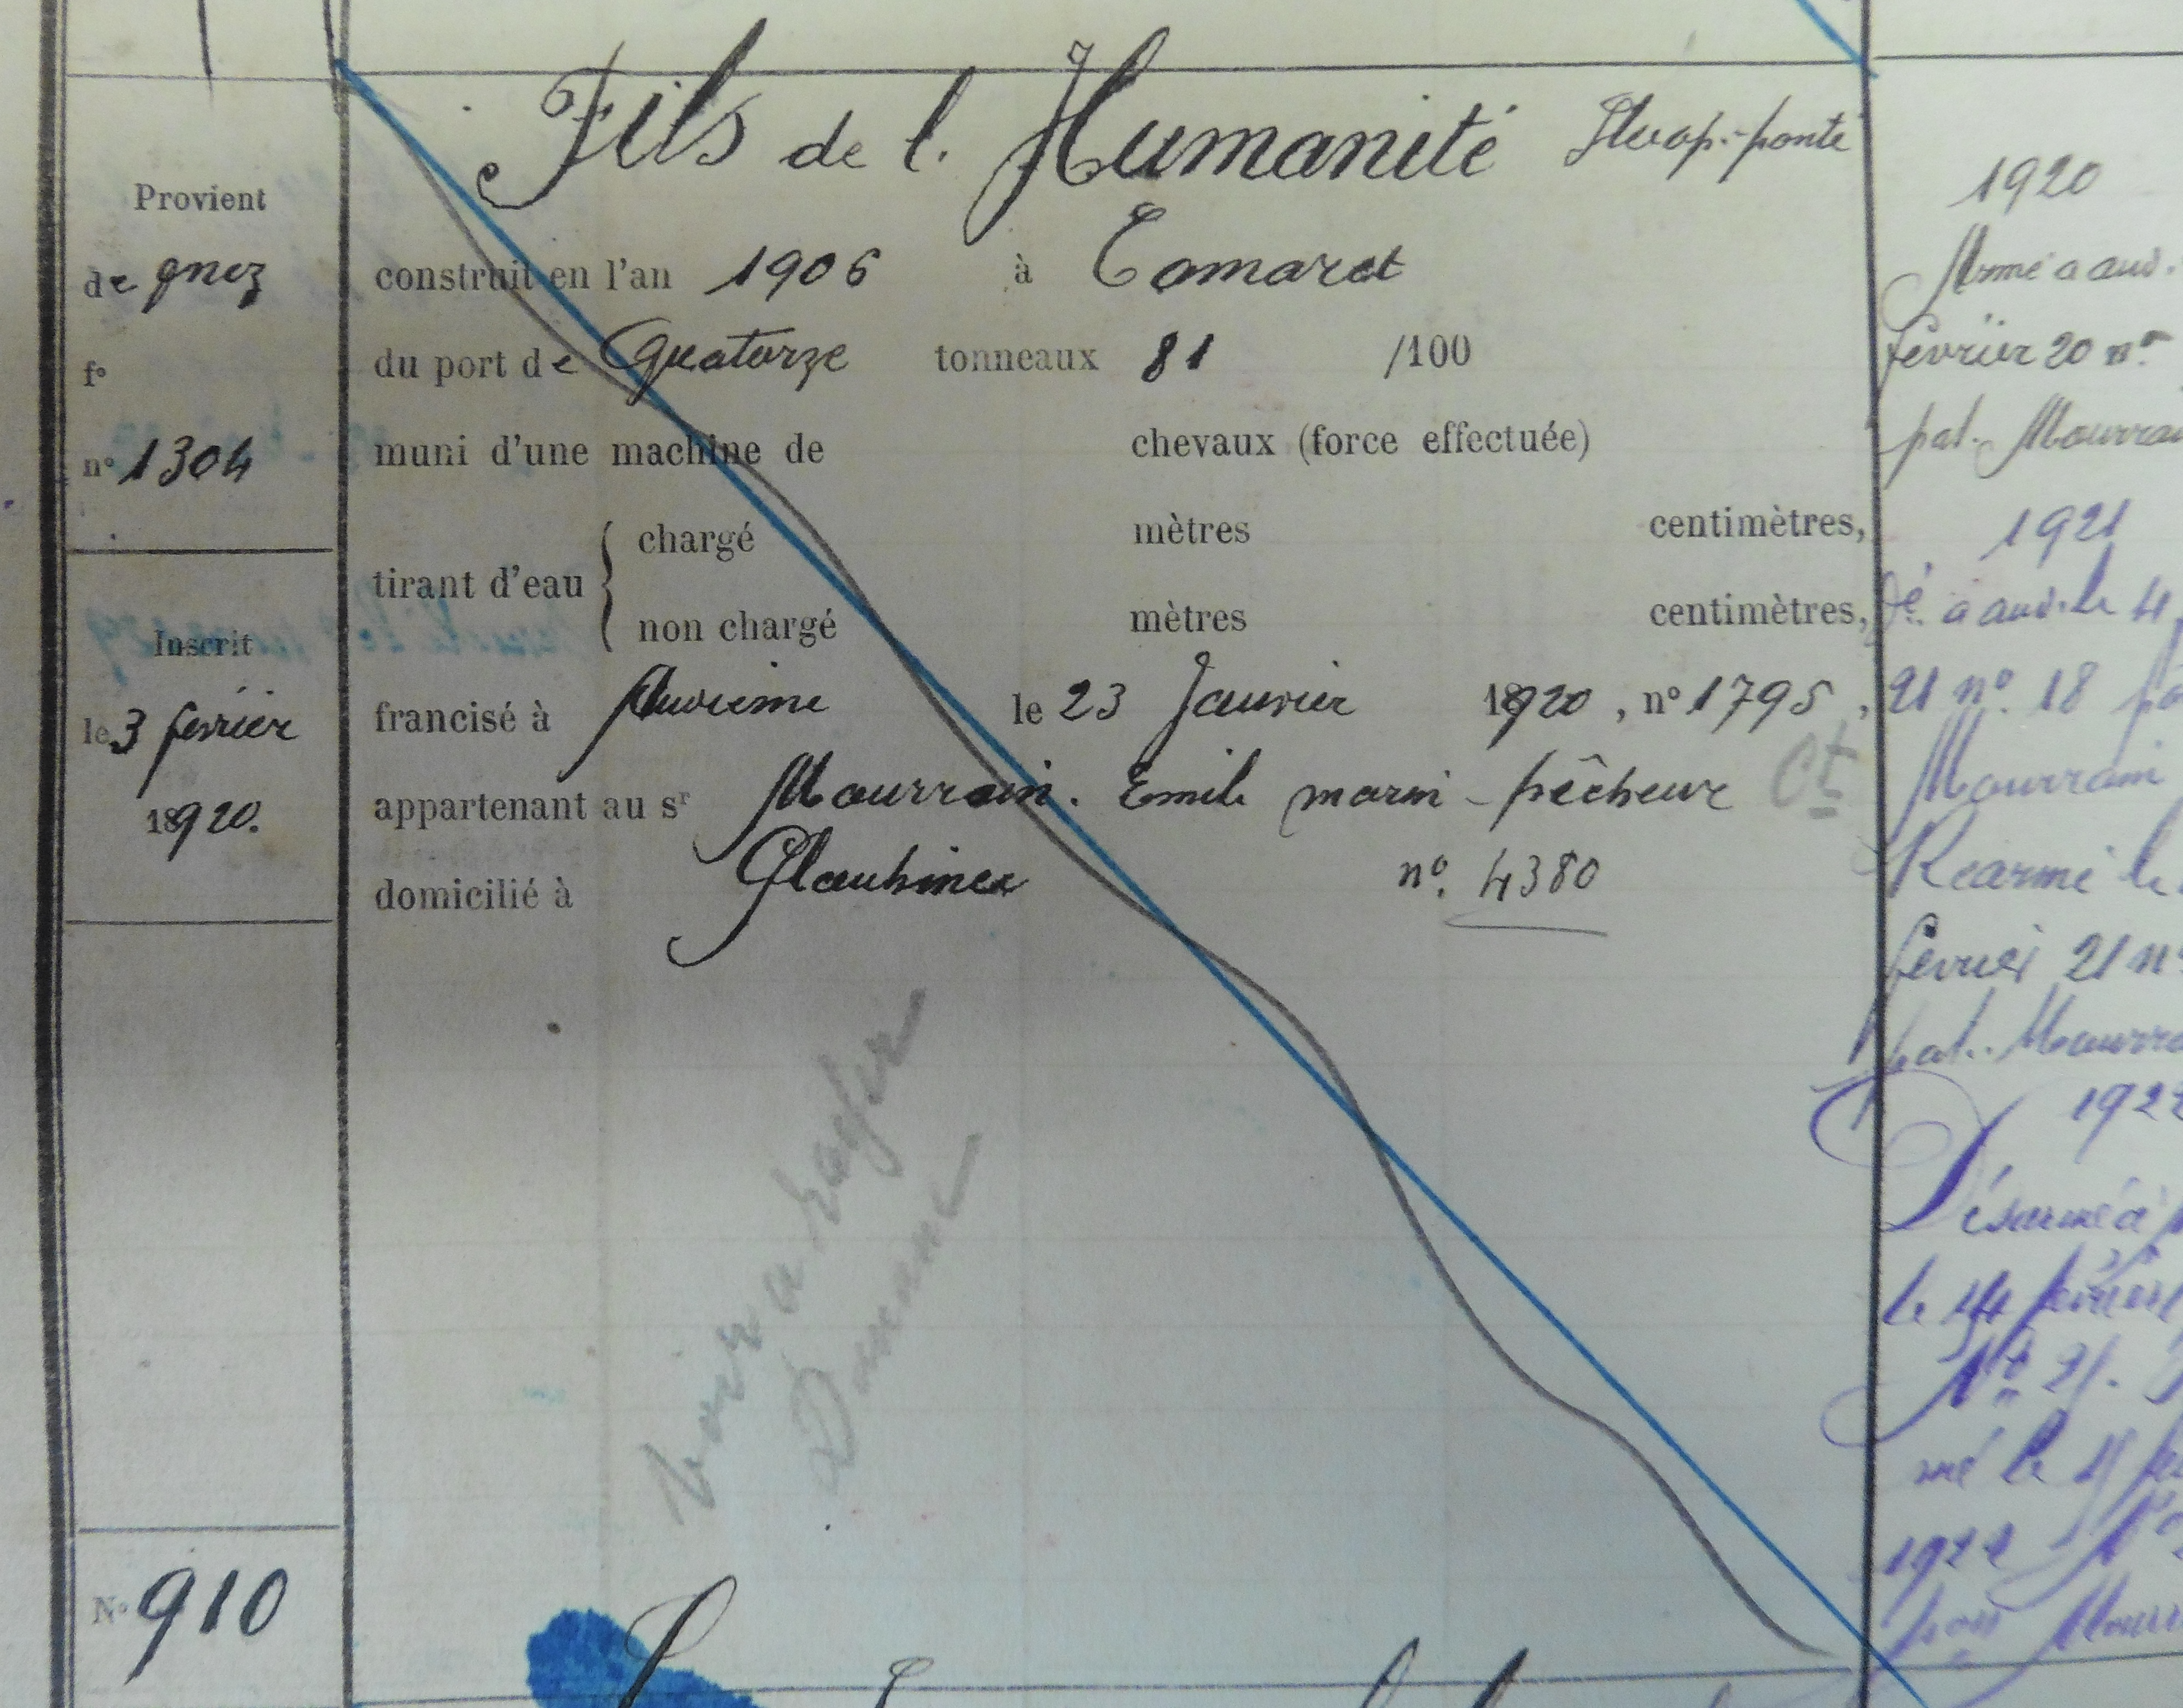 Provient
de gnez
fo
no 1304
Inscrit
le 3 février
1920.
No 910
Fils de l. Humanité Sloop-ponté
construit en l'an 1906 à Camaret
du port de Quatorze tonneaux 81 /100
muni d'une machine de chevaux (force effectuée)
tirant d'eau { chargé mètres centimètres,
non chargé mètres centimètres,
francisé à Audierne le 23 Janvier 1920, no 1795,
appartenant au sr Mourrain. Emile marin-pêcheur Ct
domicilié à no. 4380
voir a
1920
Armé a aud.
février 20 no
pat. Mourrain
1921
Dé. à aud. le 4
21 no. 18
Mourrain
Réarmé le
février 21 no
pat. Mourra
192
Désarmé à
le 14 février
No 21.
mé le
1922